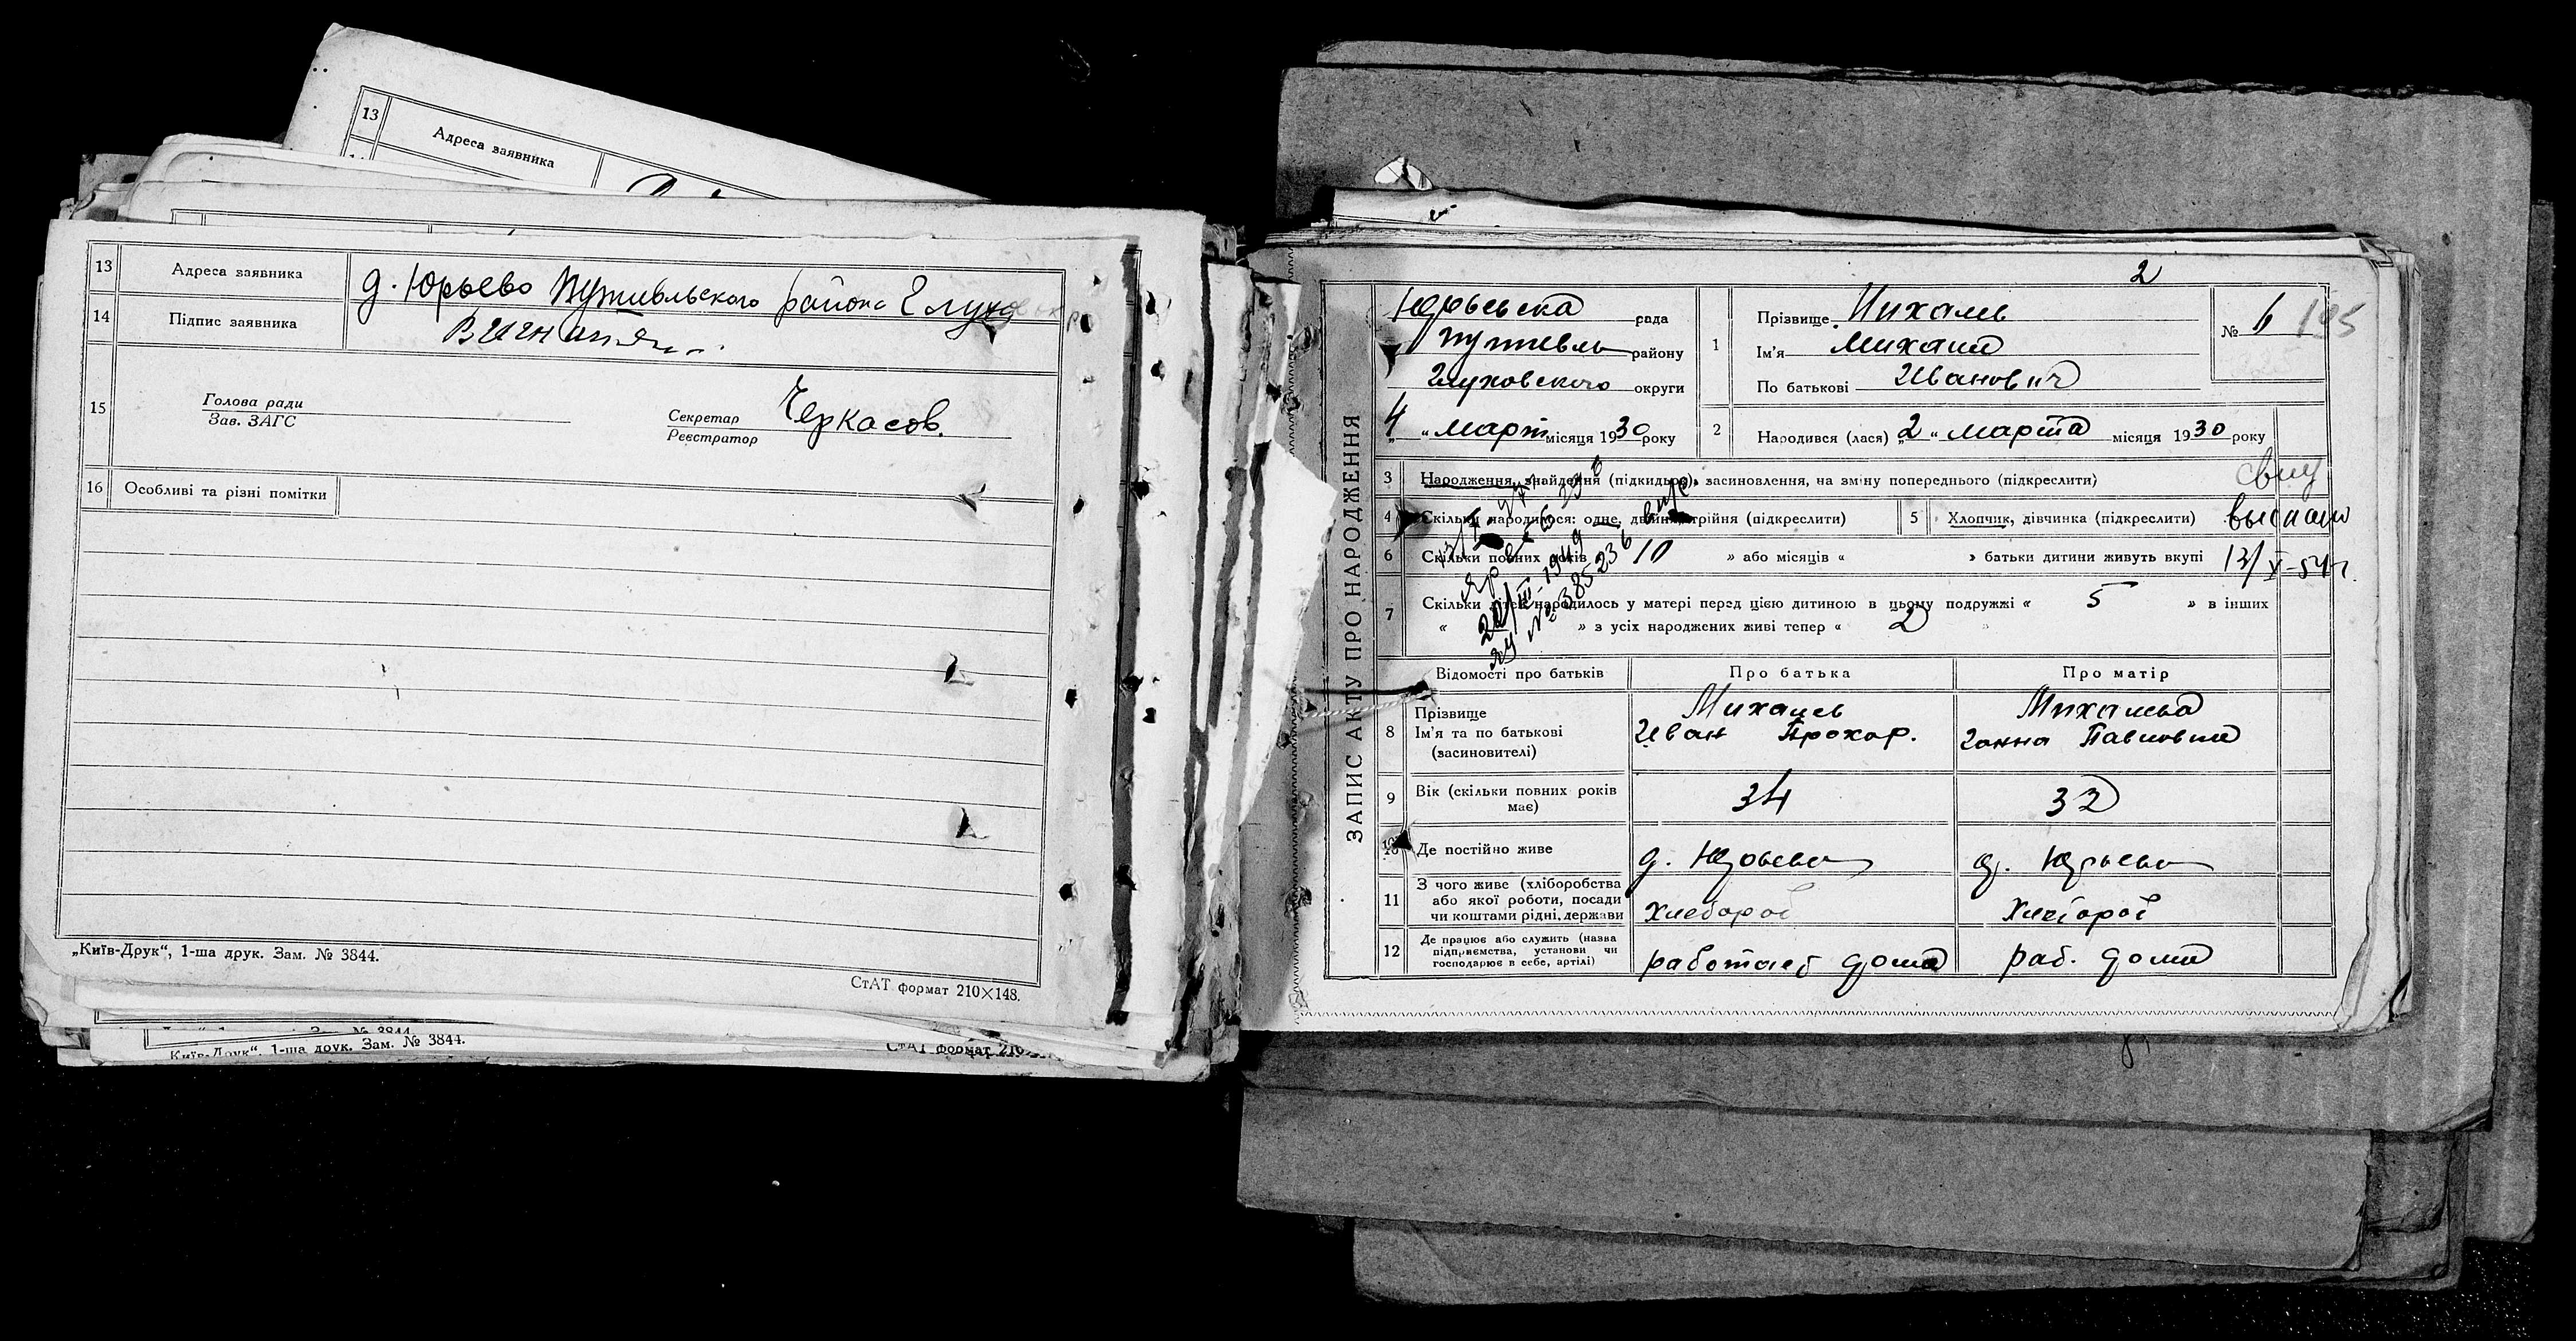 13
Адреса заявника
13 Адреса заявника д. Юрьево Путивльского района Глухо
14 Підпис заявника
15
Голова ради
Зав. ЗАГС
Секретар Черкасов.
Реєстратор
16 Особливі та різні помітки
„Київ-Друк“, 1-ша друк. Зам. № 3844.
СтАТ формат 210×148.
„Київ-Друк“, 1-ша друк. Зам. № 3844.
СтАТ формат 210
2
ЗАПИС АКТУ ПРО НАРОДЖЕННЯ
Юрьевска рада
Путивль району
Глуховского округи
4 „ “ март місяця 1930 року
1 Прізвище Михалев
Ім'я Михаил
По батькові Иванович
№ 6 195
2 Народився (лася) „2“ марта місяця 1930 року
3 Народження, знайдення (підкидько), засиновлення, на зміну попереднього (підкреслити)
4 Скільки народилося: одне, двійня, трійня (підкреслити)
5 Хлопчик, дівчинка (підкреслити)
6 Скільки повних років 10 » або місяців « » батьки дитини живуть вкупі
7 Скільки дітей народилось у матері перед цією дитиною в цьому подружжі « 5 » в інших
« » з усіх народжених живі тепер « 2 »
1949
№ 385236
Відомості про батьків Про батька Про матір
8 Прізвище
Ім'я та по батькові
(засиновителі)
Михалев
Иван Прохор.
Михалева
Ганна Павловна
9 Вік (скільки повних років має) 34 32
10 Де постійно живе д. Юрьево д. Юрьево
11 З чого живе (хліборобства
або якої роботи, посади
чи коштами рідні, держави
Хлебороб Хлебороб
12 Де працює або служить (назва
підприємства, установи чи
господарює в себе, артілі)
работает дома раб. дома